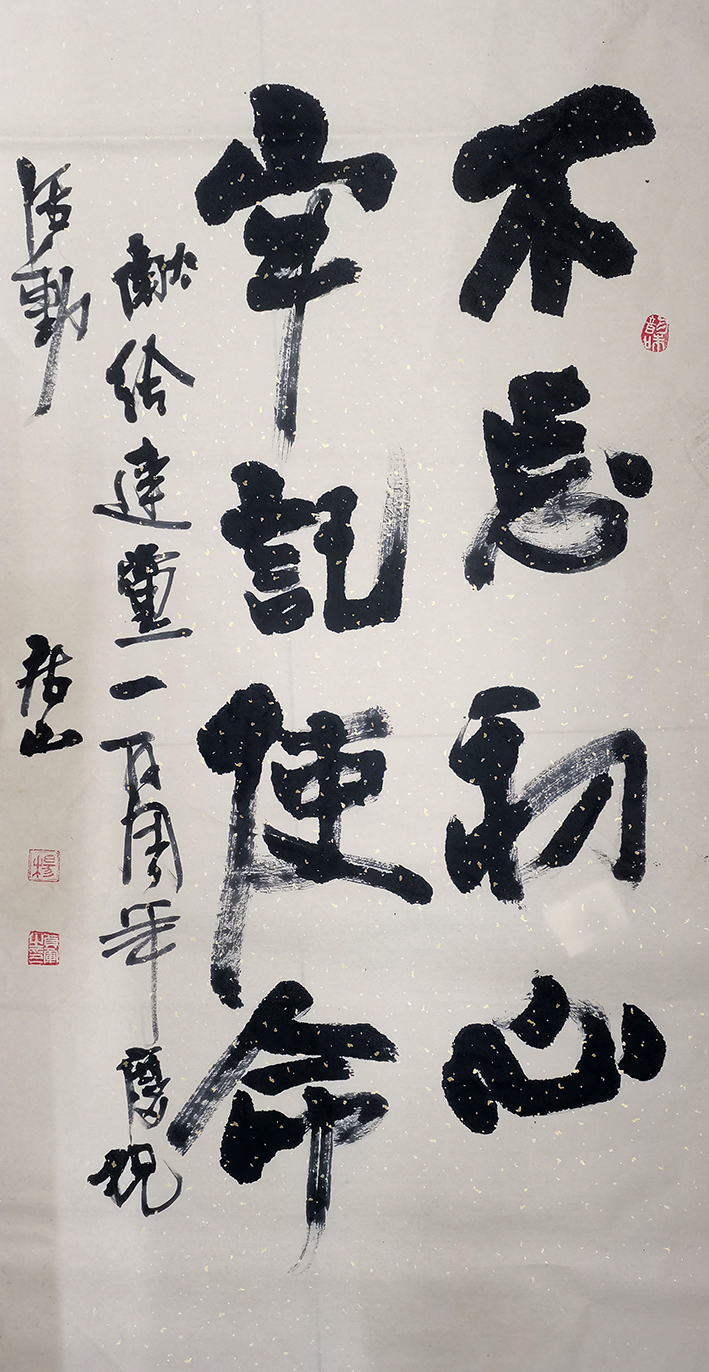 不忘初心
牢記使命
献给建黨一百周年慶祝
活動
楊